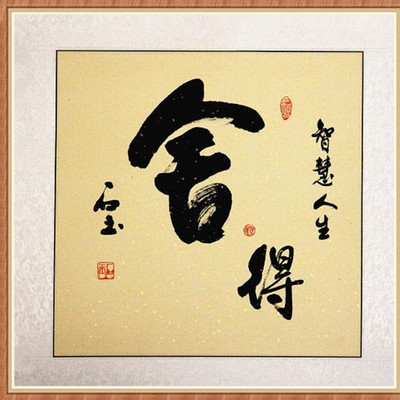 舍得
智慧人生